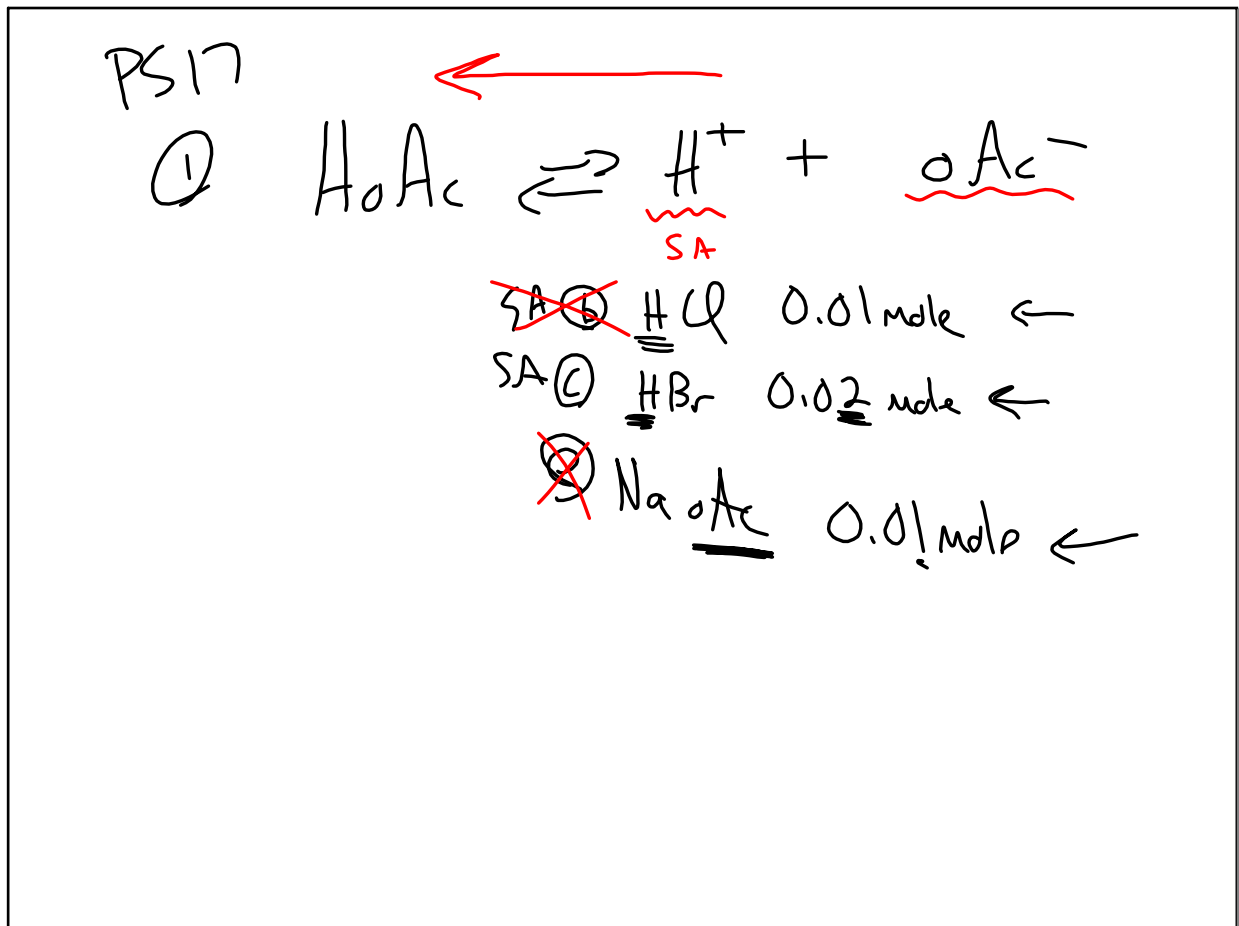 PS17
① HOAc ⇌ H⁺ + OAc⁻
SA
SA ⓑ HCl 0.01 mole ←
SA ⓒ HBr 0.02 mole ←
NaOAc 0.01 mole ←